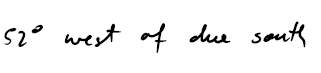 52° west of due south